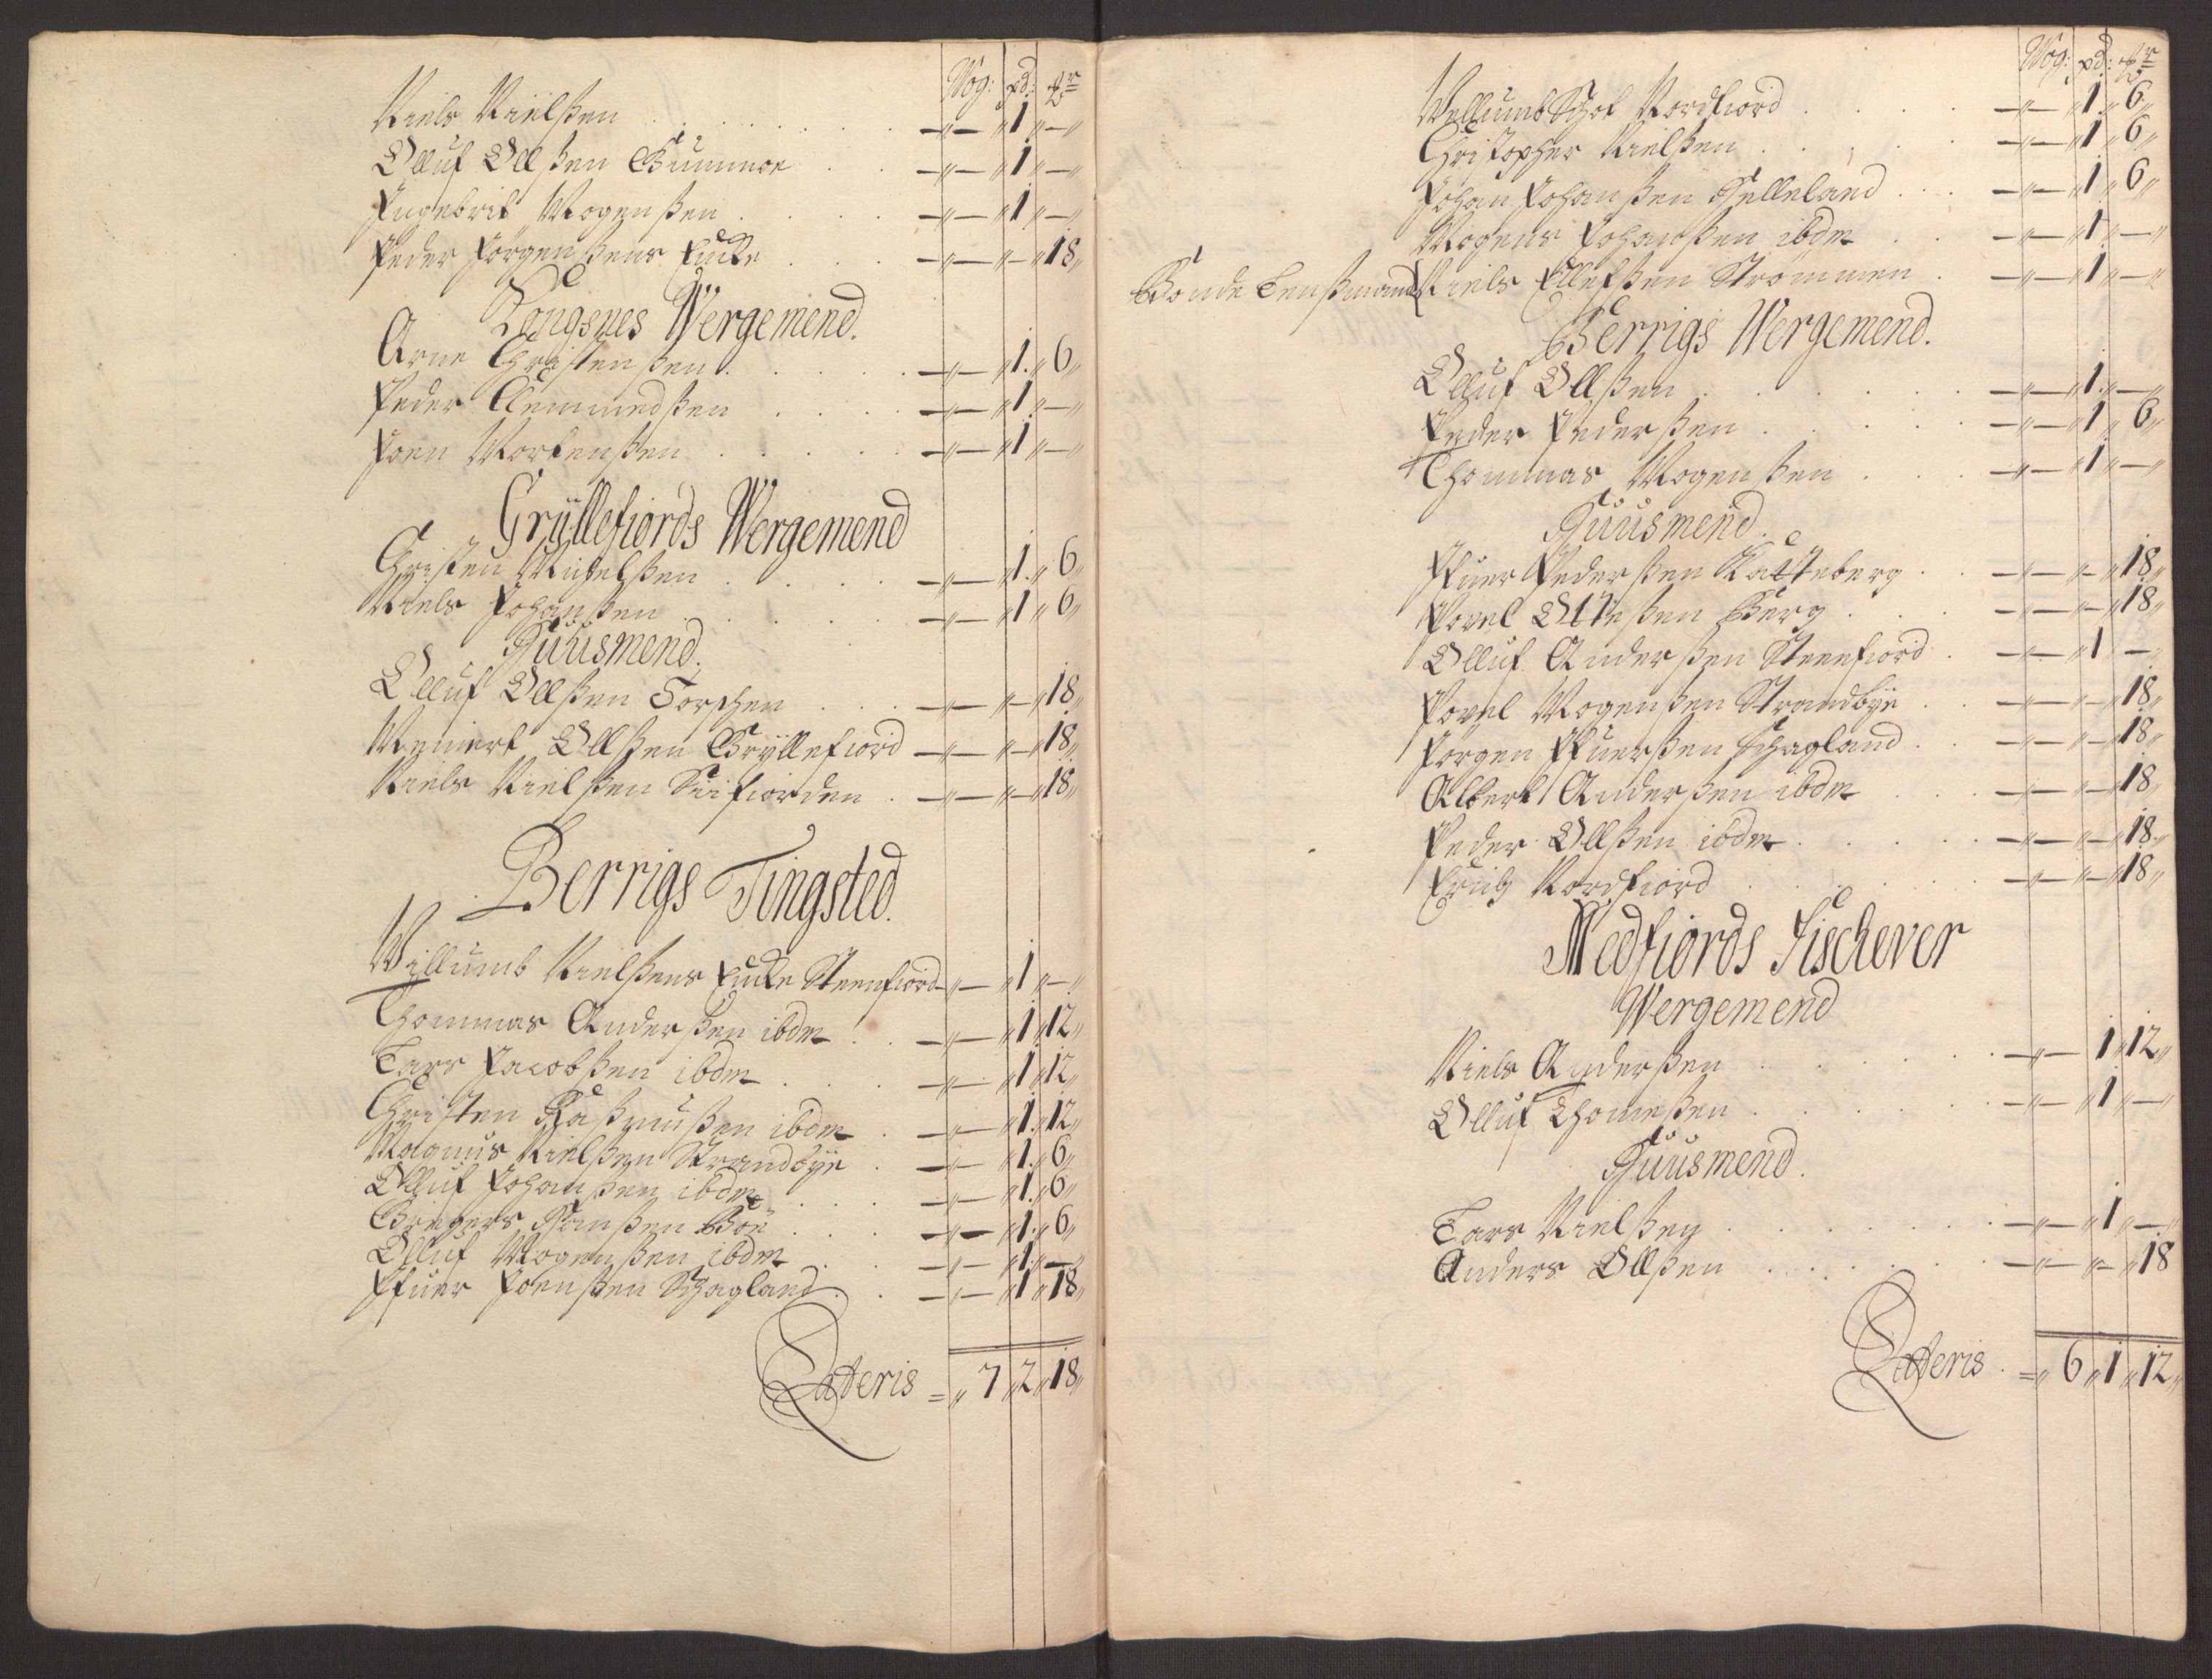 Wog: pd: ℔r
Niels Nielßen . . . — „ — „ 1 „ — „
Olluf Ollßen Gummor . . — „ — „ 1 „ — „
Ingebrit Mogenßen . . . — „ — „ 1 „ — „
Peder Jörgenßens Encke . . . — „ — „ — „ 18 „
Longsnes Wergemend.
Arne Christenßen . . . — „ — „ 1 „ 6 „
Peder Clemmedßen . . . — „ — „ 1 „ — „
Joen Mortenßen . . . — „ — „ 1 „ — „
Gryllefiords Wergemend
Christen Michelßen . . . — „ — „ 1 „ 6 „
Niels Johanßen . . . — „ — „ 1 „ 6 „
Huusmend.
Olluf Ollßen Torschen . . . — „ — „ — „ 18 „
Meniert Ollßen Gryllefiord — „ — „ — „ 18 „
Niels Nielßen Sifiorden . — „ — „ — „ 18 „
Berrigs Tingsted.
Willumb Nielßens Encke Steenfiord — „ — „ 1 „ — „
Thommas Anderßen ibdm . . — „ — „ 1 „ 12 „
Lars Jacobßen ibdm . . . — „ — „ 1 „ 12 „
Christen Raßmußen ibdm . — „ — „ 1 „ 12 „
Magnus Nielßen Strandbye . — „ — „ 1 „ 6 „
Olluf Johanßen ibdm . . . — „ — „ 1 „ 6 „
Gregers Hanßen Böe . . . — „ — „ 1 „ 6 „
Olluf Mogenßen ibdm . . — „ — „ 1 „ — „
Ifuer Joenßen Schagland . . — „ — „ 1 „ 18 „
Lateris = „ 7 „ 2 „ 18 „
Wog: pd: ℔r
Wellumb Schot Nordfiord . . . — „ — „ 1 „ 6 „
Christopher Nielßen . . . — „ — „ 1 „ 6 „
Johan Johanßen Helleland . . . — „ — „ 1 „ 6 „
Mogens Johanßen ibdm . . — „ — „ 1 „ — „
Bonde Lenßmand Niels Ellefßen Strömmen . — „ — „ 1 „ — „
Berrigs Wergemend.
Olluf Ollßen . . . — „ — „ 1 „ — „
Peder Pederßen . . . — „ — „ 1 „ 6 „
Thommas Mogenßen . . . — „ — „ 1 „ — „
Huusmend.
Ifuer Pederßen Kalteberg . . — „ — „ — „ 18 „
Povel Otteßen Berg . . . — „ — „ — „ 18 „
Olluf Anderßen Steenfiord . — „ — „ 1 — „
Povel Mogenßen Strandbye . . — „ — „ — „ 18 „
Jörgen Ifuerßen Schagland . . — „ — „ — „ 18 „
Albert Anderßen ibdm . . — „ — „ — „ 18 „
Peder Ollßen ibdm . . . — „ — „ — „ 18 „
Erich Nordfiord . . . — „ — „ — „ 18 „
Medfiords Fischever
Wergemend
Niels Anderßen . . . — „ — 1 „ 12 „
Olluf Thomeßen . . . — „ — „ 1 „ — „
Huusmend.
Lars Nielßen . . . — „ — „ 1 „ — „
Anders Ollßen . . . — „ — „ — „ 18
Lateris . = „ 6 „ 1 „ 12 „